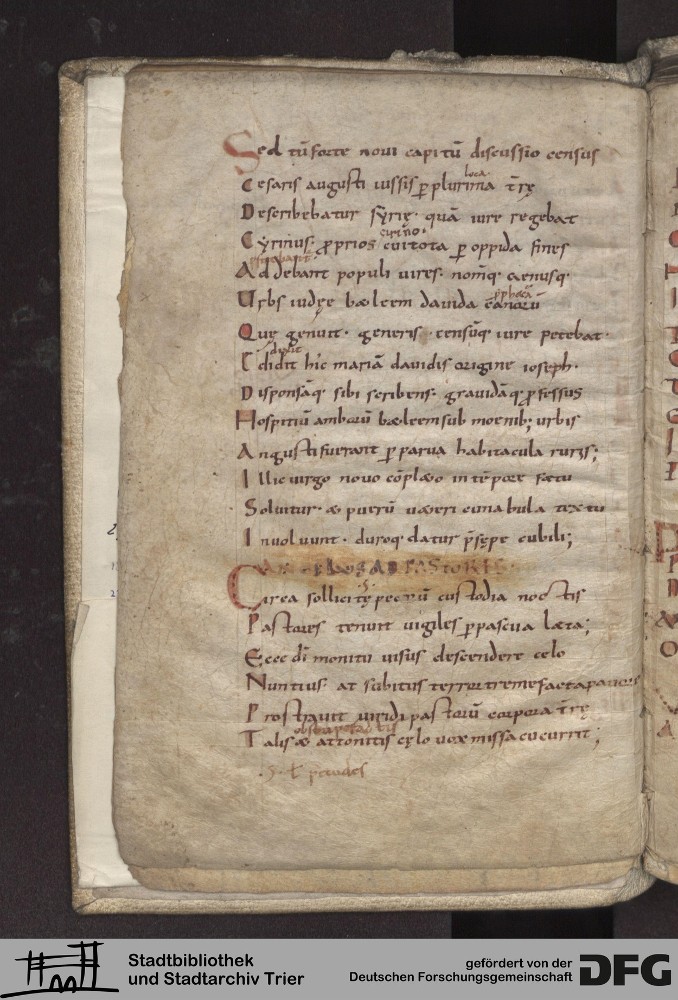 Sed tū forte novi capitū discussio census
loca
Cesaris augusti iussis ꝑ plurima t̄rę
Describebatur sẏrię · quā iure regebat
cyrino ·
Cyrinus · ꝓprios cui tota ꝑ oppida fines
Addebant populi vires · nomq · censusq ·
ꝓphetā
Urbs iudęe bæleem davida canorū
Quę genuit · generis censūq iure petebat ·
didit
Edidit hic mariā davidis origine ioseph ·
Disponsāq · sibi scribens · gravidāq ꝓfessus
Hospitiū amborū bæleem sub moenib; urbis
Angusti fuerant ꝑ parva habitacula ruris;
Illic virgo novo cōplæo in tēpore fætu
Solvitur · æ puerū væeri cunabula textu
Involvunt · duroq datur p̄sępe cubili;
AD PASTORES ·
Circa sollicitę pecorū custodia noctis
Pastores tenuit vigiles ꝑ pascua læta;
Ecce di monitu visus descendere celo
Nuntius · at subitus terror tremefacta pavore
Prostravit viridi pastorū corpora t̄rę
Talisæ attonitis cęlo vox missa cucurrit;
Stadtbibliothek
und Stadtarchiv Trier
gefördert von der
Deutschen Forschungsgemeinschaft
DFG